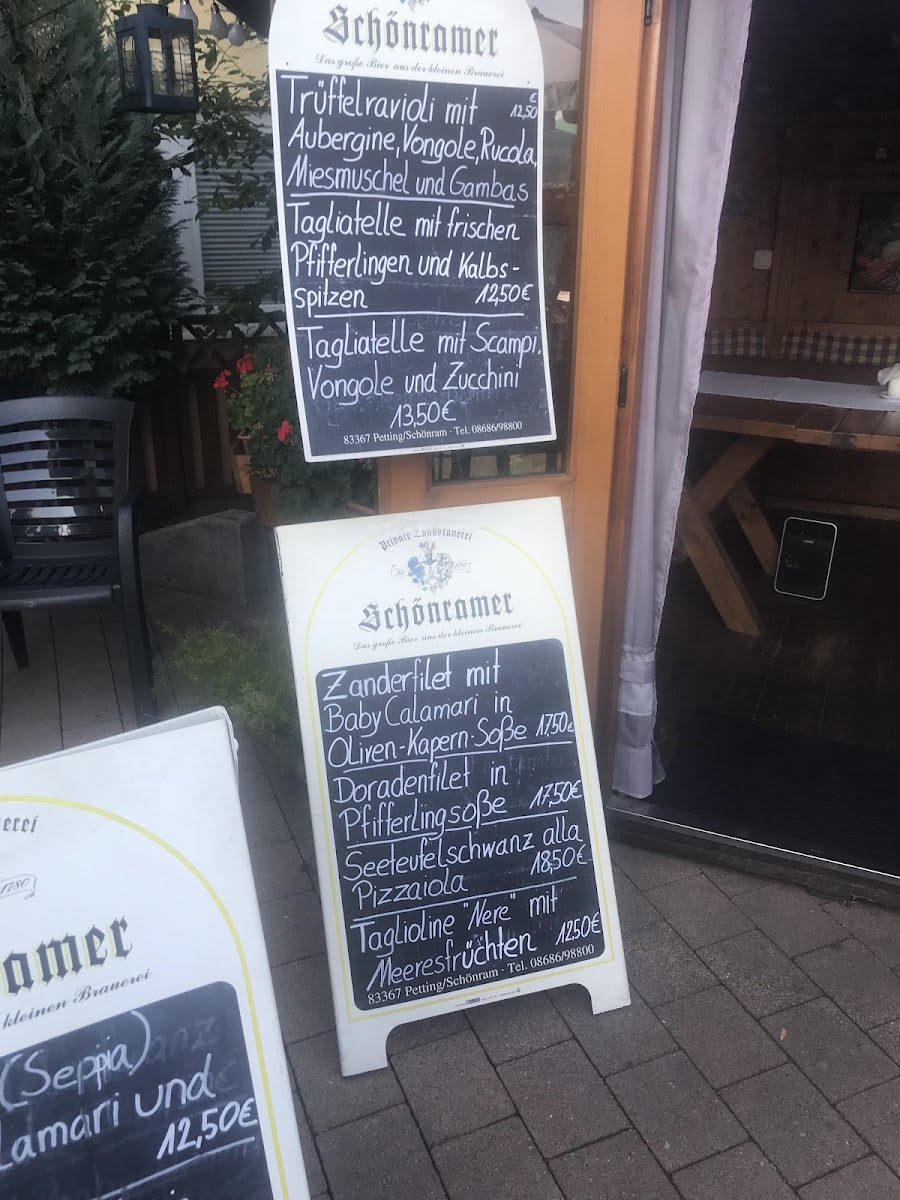 Schönramer
Das große Bier aus der kleinen Brauerei
Trüffelravioli mit € 12,50
Aubergine, Vongole, Rucola,
Miesmuschel und Gambas
Tagliatelle mit frischen
Pfifferlingen und Kalbs-
spitzen 12,50€
Tagliatelle mit Scampi,
Vongole und Zucchini
13,50€
83367 Petting/Schönram · Tel. 08686/98800
Private Landbrauerei
Schönramer
Das große Bier aus der kleinen Brauerei
Zanderfilet mit
Baby Calamari in
Oliven-Kapern-Soße 17,50€
Doradenfilet in
Pfifferlingsoße 17,50€
Seeteufelschwanz alla
Pizzaiola 18,50€
Taglioline "Nere" mit
Meeresfrüchten 12,50€
83367 Petting/Schönram · Tel. 08686/98800
erei
1780
amer
kleinen Brauerei
(Seppia)
lamari und
12,50€